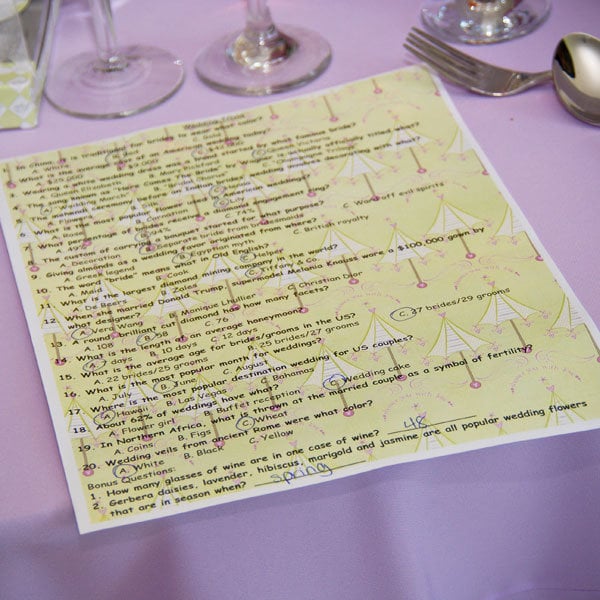 1. In China, it is traditional for brides to wear what color?
A. White B. Red C. Gold
2. What is the average cost of an American wedding today?
A. $15,000 B. $5,000
3. Wearing a white wedding dress was a trend started by what famous bride?
Elizabeth C. Queen Victoria
4. The song known as "Here Comes the Bride" by Wagner is actually officially titled what?
March
5. The mehndi ceremony is an Indian bridal wedding involves decorating with what?
6. What is the most
B. Carnation C. Lily
7. What percentage of brides receive a diamond engagement ring?
C. 74%
8. The custom of carrying a bouquet started for what purpose?
A. Decoration B. to hide from bridesmaids C. Ward off evil spirits
9. Giving almonds as a wedding favor originated from where?
A. Greek legend B. Egyptian myth C. British royalty
10. The word "bride" means what in Old English?
A. Maid B. Cook C. Helper
11. What is the largest diamond mining company in the world?
A. De Beers B. Zales C. Tiffany & Co.
12. When she married Donald Trump, supermodel Melania Knauss wore a $100,000 gown by
what designer?
A. Vera Wang B. Monique Lhuillier C. Christian Dior
13. A round, brilliant cut diamond has how many facets?
A. 108 B. 58 C. 76
14. What is the length of an average honeymoon?
A. 7 days B. 10 days C. 12 days
15. What is the average age for brides/grooms in the US?
A. 22 brides/25 grooms B. 25 brides/27 grooms C. 27 brides/29 grooms
16. What is the most popular month for weddings?
A. July B. June C. August
17. Where is the most popular destination wedding for US couples?
A. Hawaii B. Las Vegas C. Bahamas
18. About 62% of weddings have what?
A. Flower girl B. Buffet reception C. Wedding cake
19. In North Africa, what is thrown at the married couple as a symbol of fertility?
A. Coins B. Figs C. Wheat
20. Wedding veils from ancient Rome were what color?
A. White B. Black C. Yellow
Bonus Questions:
1. How many glasses of wine are in one case of wine? 48
2. Gerbera daisies, lavender, hibiscus, marigold and jasmine are all popular wedding flowers
that are in season when? spring